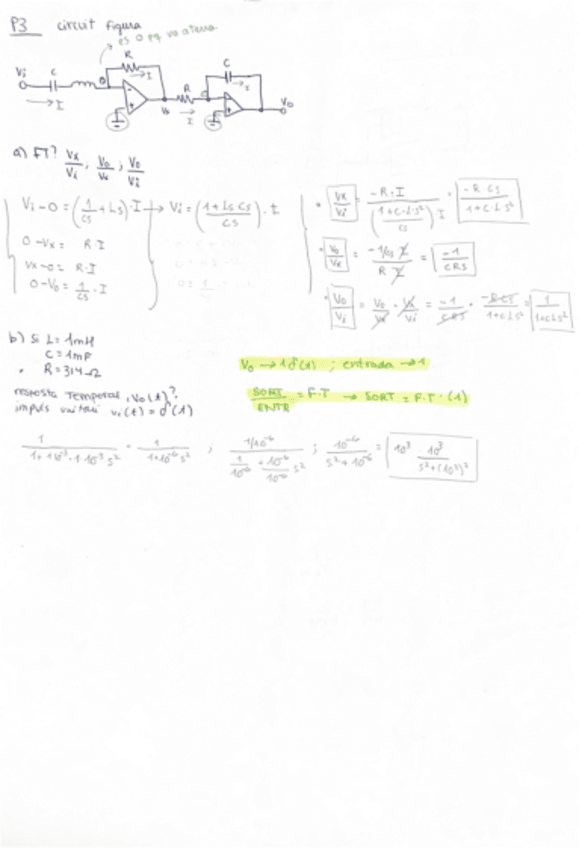 P3 circuit figura
es 0 pq va a terra
R
Vi C I R C Vo
I Vx I I
a) FT? Vx/Vi ; Vo/Vx ; Vo/Vi
Vi-0 = (1/CS + LS)·I → Vi = (1+LS CS / CS)·I
0-Vx = R·I
Vx-0 = R·I
0-Vo = 1/CS · I
• Vx/Vi = -R·I / (1+C·L·S²/CS) I = -R CS / 1+C·L·S²
• Vo/Vx = -1/CS I / R I = -1/CRS
• Vo/Vi = Vo/Vx · Vx/Vi = -1/CRS · -RCS/1+CLS² = 1/1+CLS²
b) Si L = 1mH
C = 1mF
R = 314Ω
resposta Temporal, Vo(t)?
impuls unitari vi(t) = δ(t)
Vo → 1 δ(t) ; entrada → 1
SORT/ENTR = F.T → SORT = F.T · (1)
1/1+1·10⁻³·1·10⁻³S² = 1/1+10⁻⁶S² ;